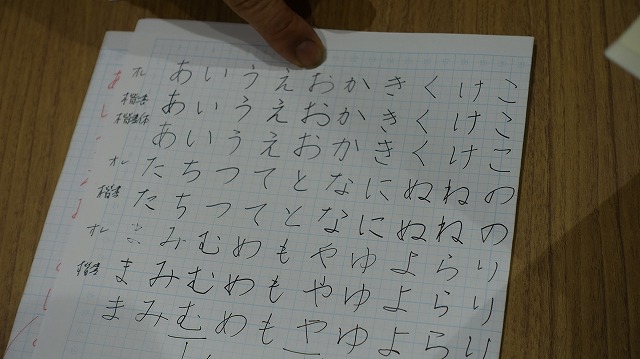 オレ あいうえおかきくけこ
楷書 あいうえおかきくけこ
楷書体 あいうえおかきくけこ
オレ たちつてとなにぬねの
楷書 たちつてとなにぬねの
オレ まみむめもやゆよらり
楷書 まみむめもやゆよらり
まみむめもやゆよらり